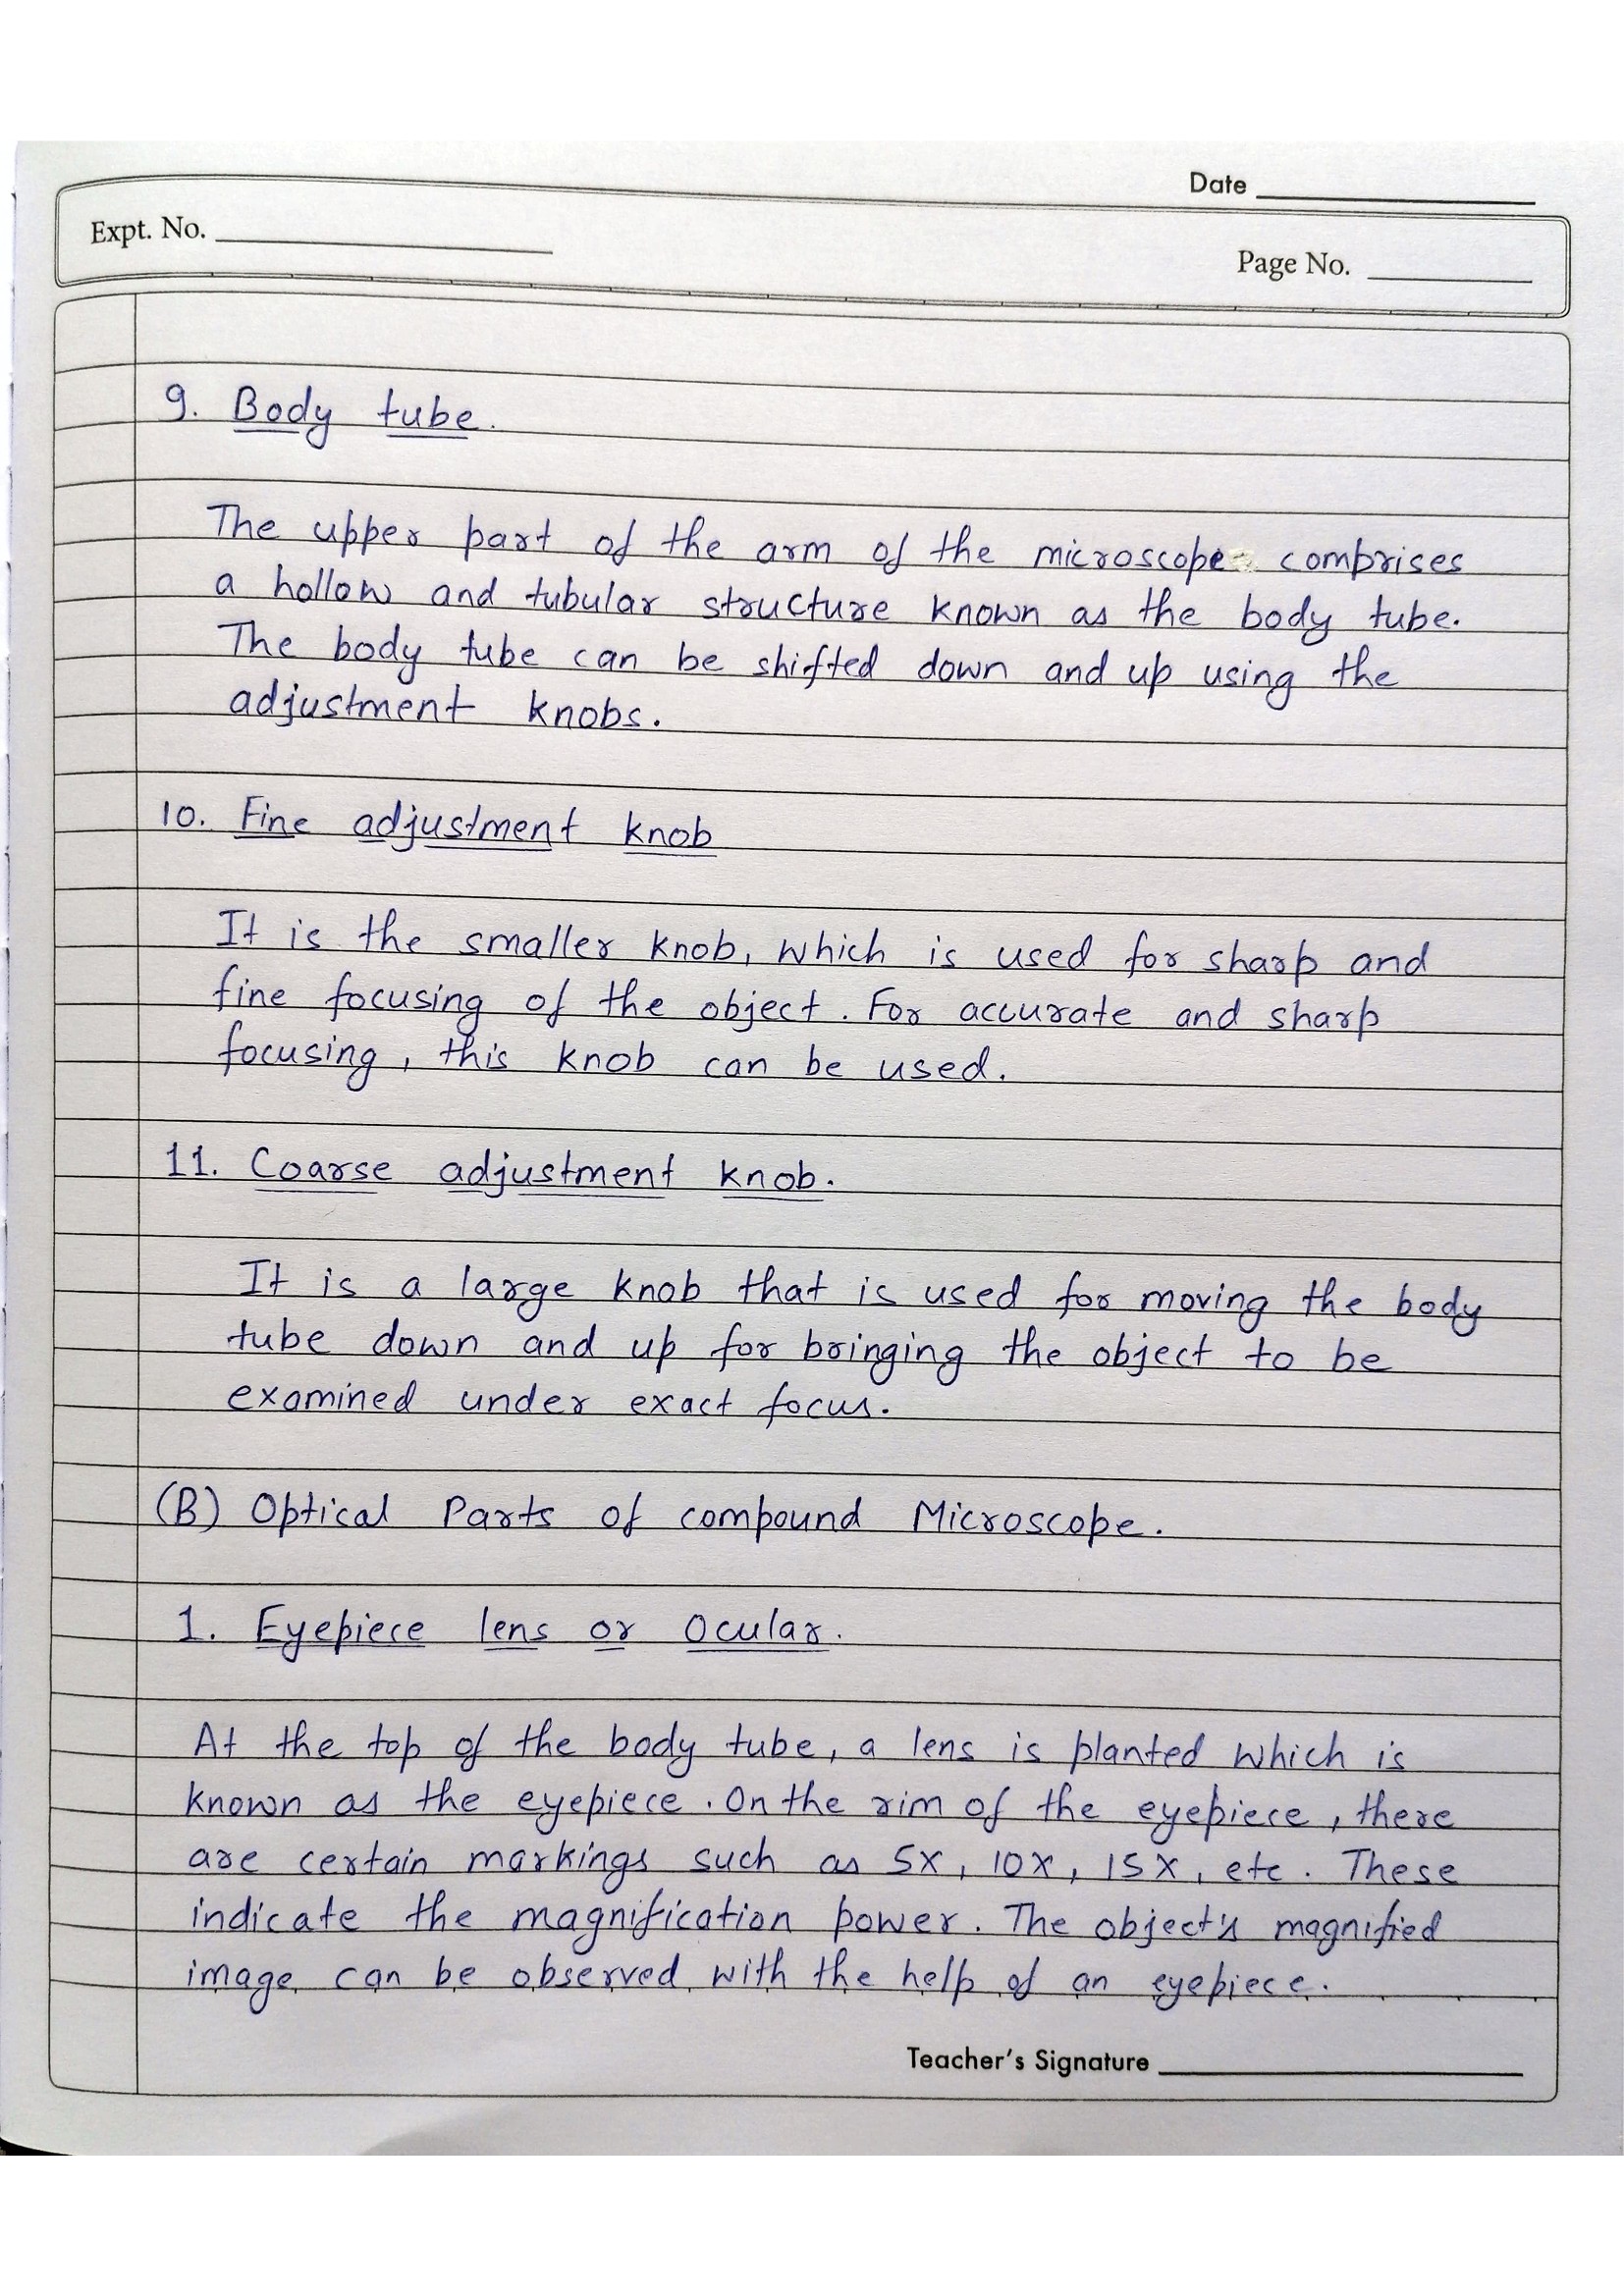 Date
Expt. No.
Page No.
9. Body tube.
The upper part of the arm of the microscope comprises
a hollow and tubular structure known as the body tube.
The body tube can be shifted down and up using the
adjustment knobs.
10. Fine adjustment knob
It is the smaller knob, which is used for sharp and
fine focusing of the object. For accurate and sharp
focusing, this knob can be used.
11. Coarse adjustment knob.
It is a large knob that is used for moving the body
tube down and up for bringing the object to be
examined under exact focus.
(B) Optical Parts of compound Microscope.
1. Eyepiece lens or Ocular.
At the top of the body tube, a lens is planted which is
known as the eyepiece. On the rim of the eyepiece, there
are certain markings such as 5X, 10X, 15X, etc. These
indicate the magnification power. The object's magnified
image can be observed with the help of an eyepiece.
Teacher's Signature